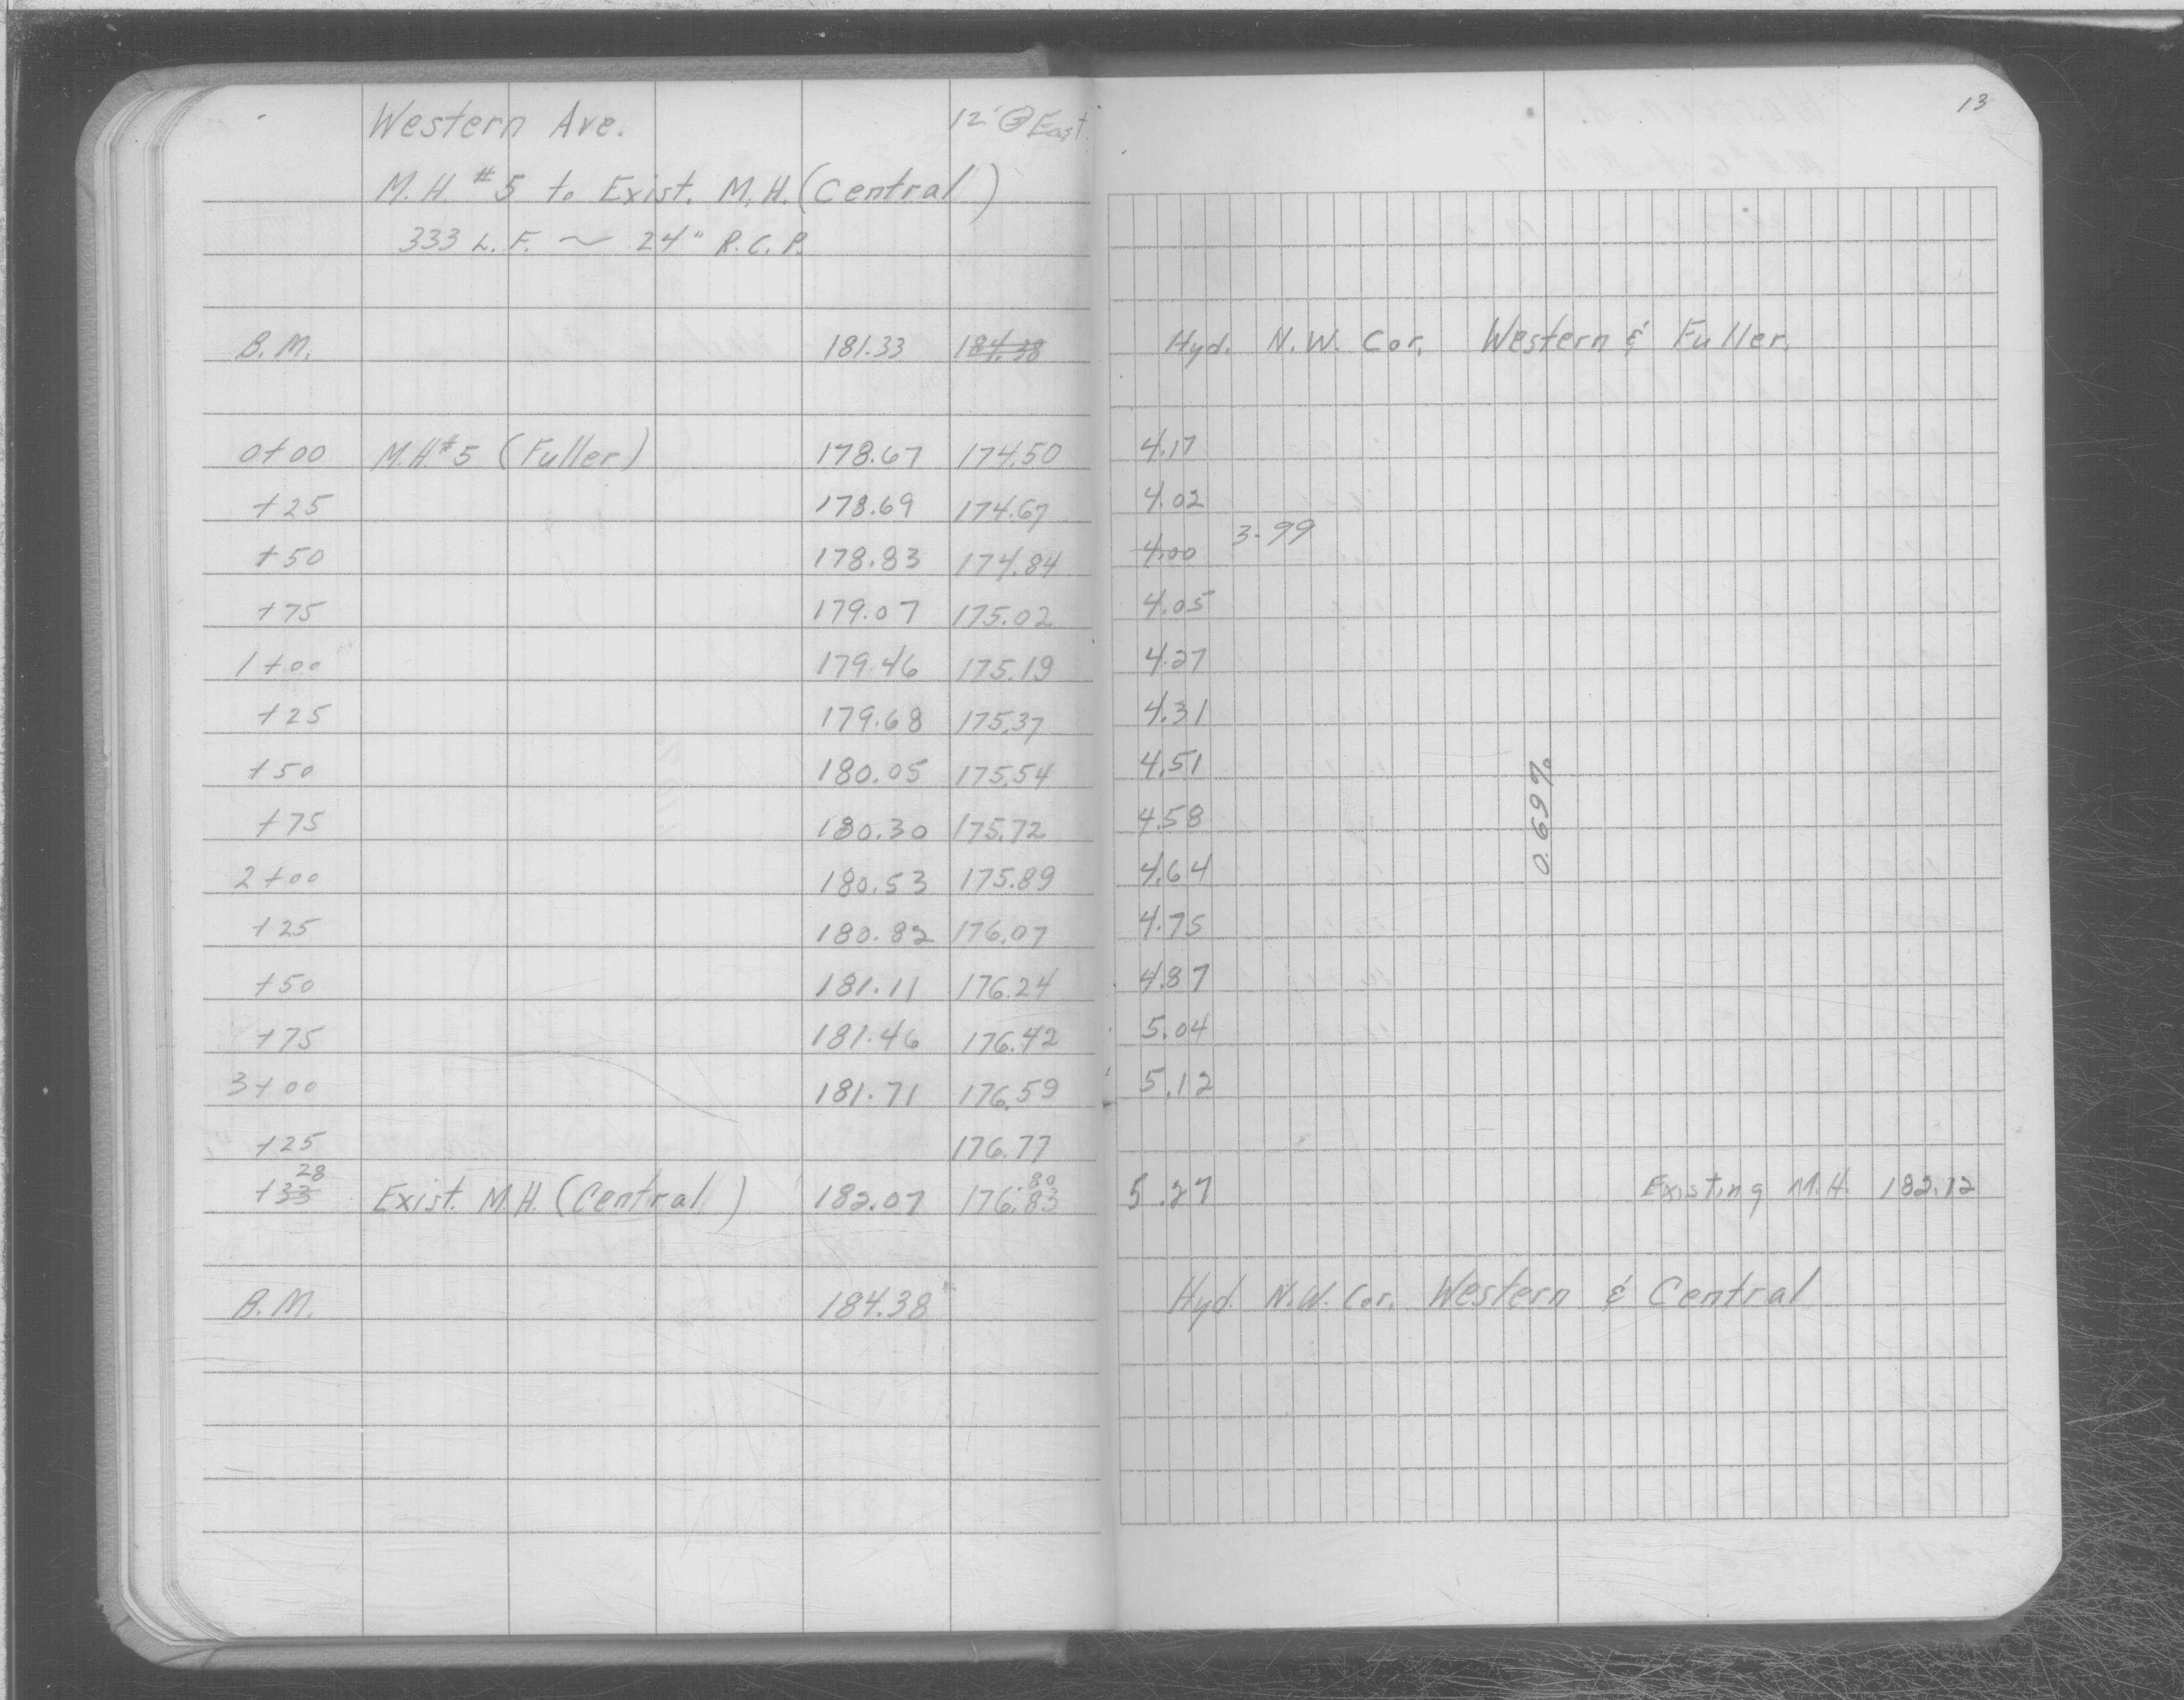 13
Western Ave. 12' @ East.
M.H. #5 to Exist. M.H. (Central)
333 L.F. ~ 24" R.C.P.
B.M. 181.33 184.38 Hyd. N.W. Cor. Western & Fuller.
0+00 M.H.#5 (Fuller) 178.67 174.50 4.17
+25 178.69 174.67 4.02
+50 178.83 174.84 4.00 3.99
+75 179.07 175.02 4.05
1+00 179.46 175.19 4.27
+25 179.68 175.37 4.31
+50 180.05 175.54 4.51
+75 180.30 175.72 4.58
0.69%
2+00 180.53 175.89 4.64
+25 180.82 176.07 4.75
+50 181.11 176.24 4.87
+75 181.46 176.42 5.04
3+00 181.71 176.59 5.12
+25 176.77
28 .80
+33 Exist. M.H. (Central) 182.07 176.83 5.27 Existing M.H. 182.12
B.M. 184.38 Hyd. N.W. Cor. Western & Central